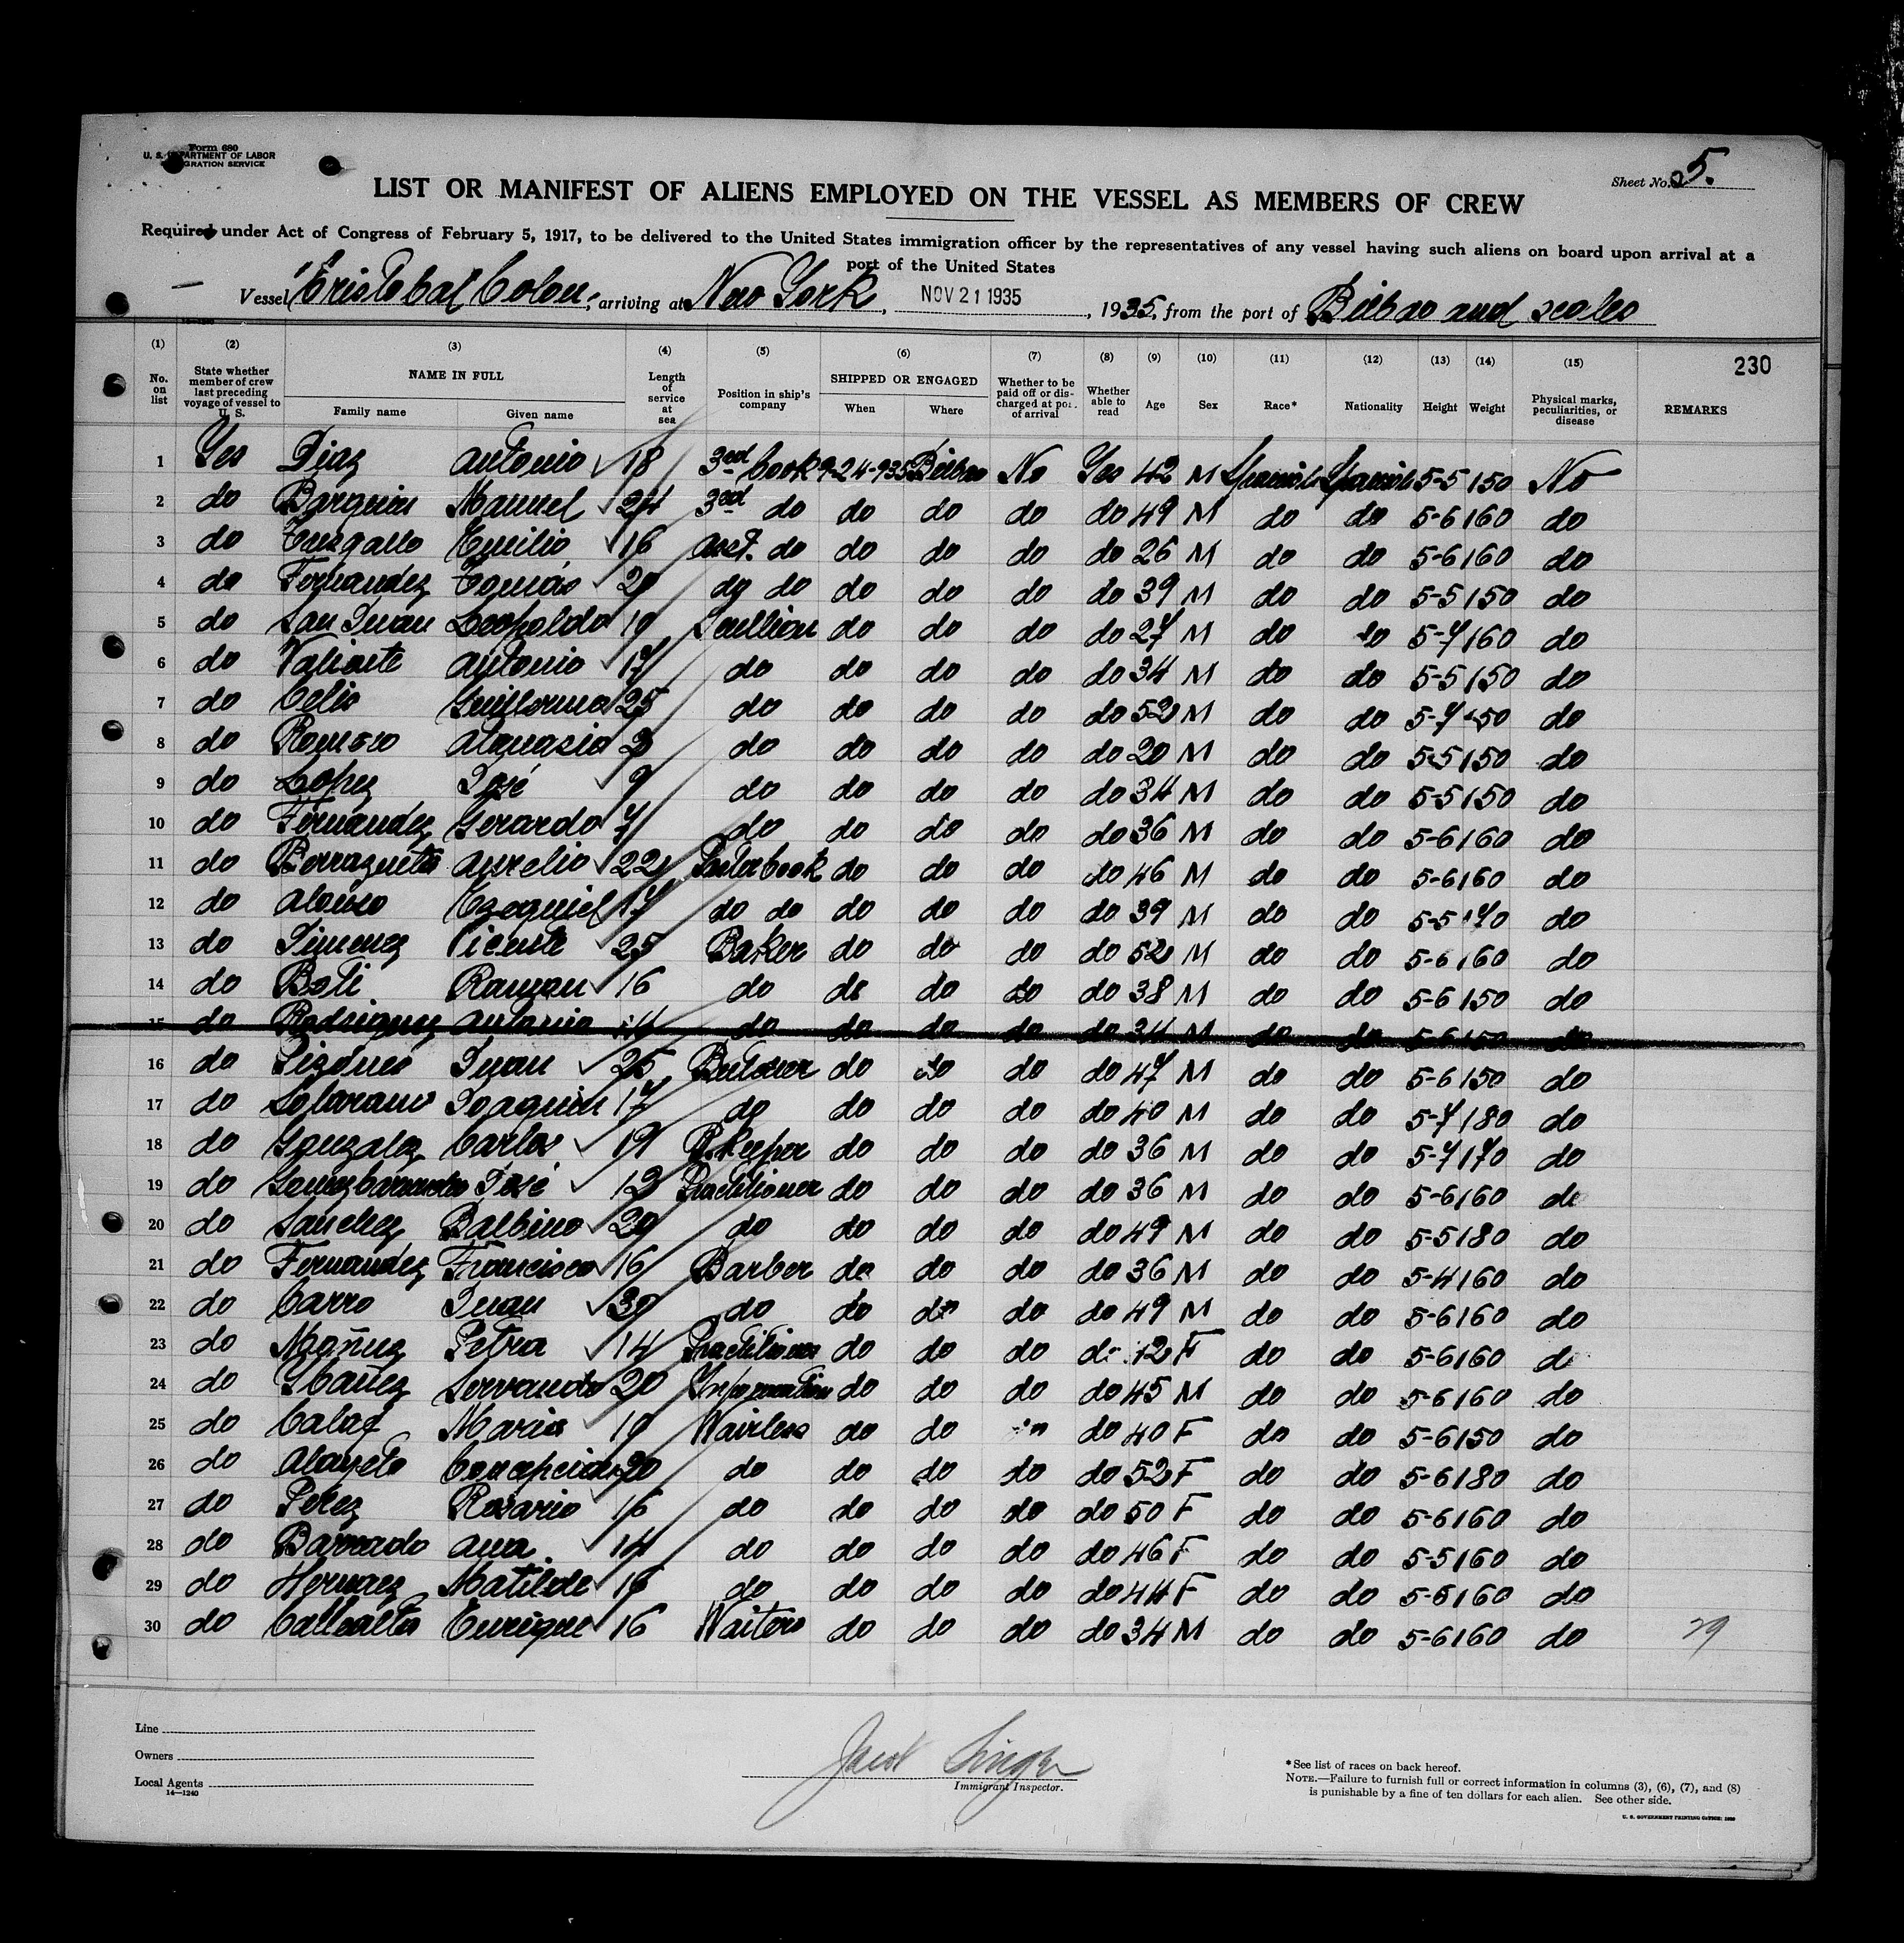 Form 680
U. S. DEPARTMENT OF LABOR
IMMIGRATION SERVICE
Sheet No. 5.
LIST OR MANIFEST OF ALIENS EMPLOYED ON THE VESSEL AS MEMBERS OF CREW
Required under Act of Congress of February 5, 1917, to be delivered to the United States immigration officer by the representatives of any vessel having such aliens on board upon arrival at a
port of the United States
Vessel "Cristobal Colon", arriving at New York, NOV 21 1935, 1935, from the port of Bilbao and scales
(1) (2) (3) (4) (5) (6) (7) (8) (9) (10) (11) (12) (13) (14) (15) 230
No. on list State whether member of crew last preceding voyage of vessel to U. S. NAME IN FULL Family name Given name Length of service at sea Position in ship's company SHIPPED OR ENGAGED When Where Whether to be paid off or discharged at port of arrival Whether able to read Age Sex Race* Nationality Height Weight Physical marks, peculiarities, or disease REMARKS
1 Yes Diaz Antonio 18 3rd Cook 9-24-935 Bilbao No Yes 42 M Spanish Spanish 5-5 150 No
2 do Barquin Manuel 24 3rd do do do do do 49 M do do 5-6 160 do
3 do Emilio 16 Asst. do do do do do 26 M do do 5-6 160 do
4 do Fernandez Tomás 20 do do do do do do 39 M do do 5-5 150 do
5 do San Juan Leopoldo 10 Scullion do do do do 27 M do do 5-7 160 do
6 do Valiente Antonio 17 do do do do do 34 M do do 5-5 150 do
7 do Celis Guillermo 25 do do do do do 52 M do do 5-7 150 do
8 do Romero Atanasio 3 do do do do do 20 M do do 5-5 150 do
9 do Lopez José 9 do do do do do 34 M do do 5-5 150 do
10 do Fernandez Gerardo 7 do do do do do 36 M do do 5-6 160 do
11 do Berrazueta Aurelio 22 Cook do do do do 46 M do do 5-6 160 do
12 do Alonso Ezequiel 17 do do do do do do 39 M do do 5-5 170 do
13 do Jimenez Vicente 25 Baker do do do do 52 M do do 5-6 160 do
14 do Boti Ramon 16 do do do do do 38 M do do 5-6 150 do
15 do Rodriguez Antonio 14 do do do do do 34 M do do 5-6 150 do
16 do Juan 25 Butcher do do do do 47 M do do 5-6 150 do
17 do Solorano Joaquin 17 do do do do do 40 M do do 5-7 180 do
18 do Gonzalez Carlos 19 B. Keeper do do do do 36 M do do 5-7 170 do
19 do José 12 Practitioner do do do do 36 M do do 5-6 160 do
20 do Sanchez Balbino 20 do do do do do 49 M do do 5-5 180 do
21 do Fernandez Francisco 16 Barber do do do do 36 M do do 5-4 160 do
22 do Carro Juan 30 do do do do do 49 M do do 5-6 160 do
23 do Petra 14 Practitioner do do do do 42 F do do 5-6 160 do
24 do Ybañez Servando 20 Information do do do do 45 M do do 5-6 160 do
25 do Calaf Maria 10 Wairless do do do do 40 F do do 5-6 150 do
26 do Concepcion 20 do do do do do 52 F do do 5-6 180 do
27 do Perez Rosario 16 do do do do do 50 F do do 5-6 160 do
28 do Barrado Ana 14 do do do do do 46 F do do 5-5 160 do
29 do Hernaez Matilde 16 do do do do do 44 F do do 5-6 160 do
30 do Enrique 16 Waiters do do do do 34 M do do 5-6 160 do 29
Line
Owners
Local Agents
14—1240
Immigrant Inspector.
*See list of races on back hereof.
NOTE.—Failure to furnish full or correct information in columns (3), (6), (7), and (8)
is punishable by a fine of ten dollars for each alien. See other side.